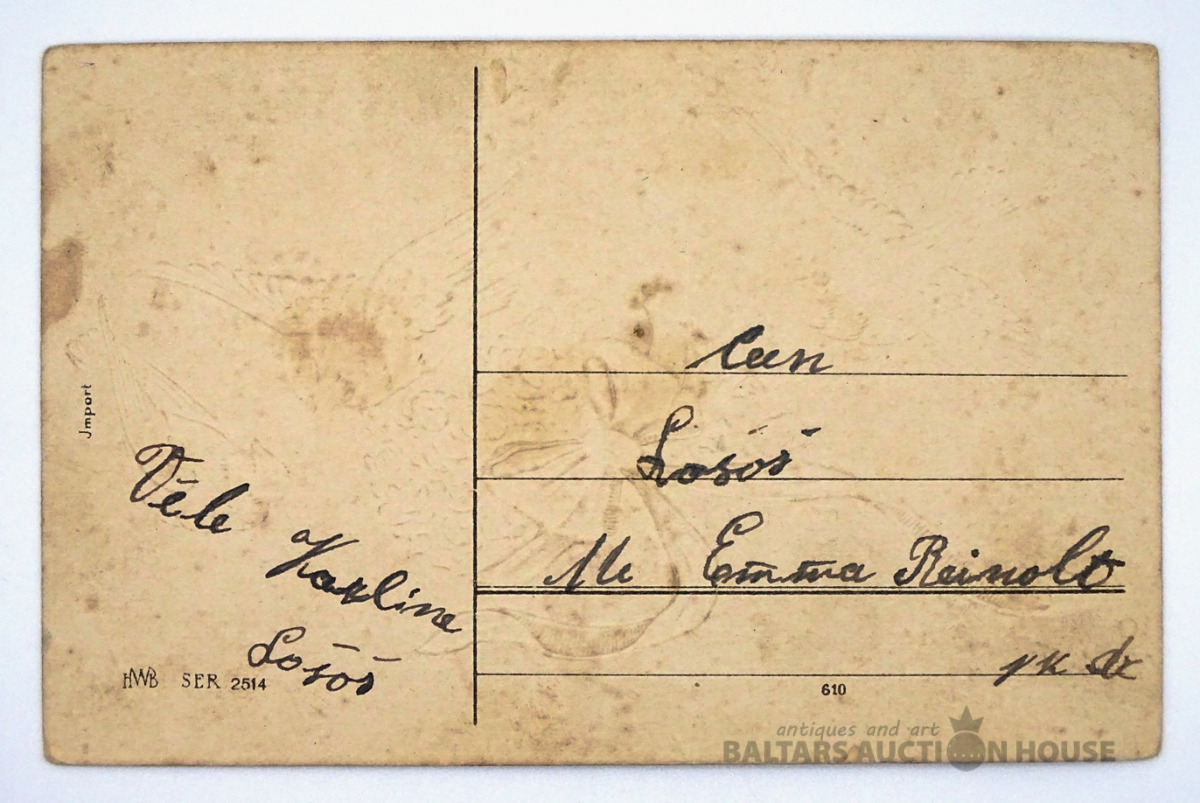 Jmport
Vēle Karline
Lošós
HWB SER 2514
Cien
Lošós
Me Emma Reinolt
610
antiques and art
BALTARS AUCTION HOUSE